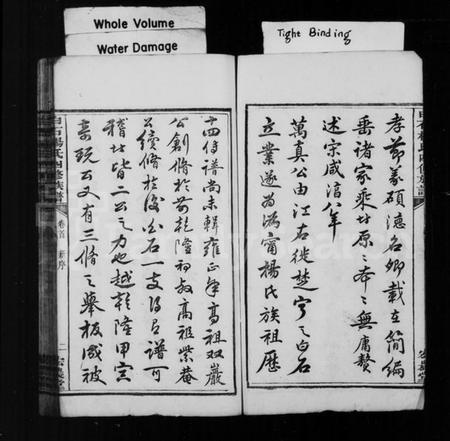 Whole Volume
Water Damage
Tight Binding
孝節義碩德名卿載在簡編
垂諸家乘時原原本本無庸贅
述宗咸信八年
萬真公由江右徙楚寧之白石
立業遂為溈甯楊氏族祖歷
十四傳譜尚未輯雍正年高祖双巖
公創脩於前乾隆初叔高祖紫菴
公續脩於後白石一支得有譜可
稽者皆二公之力也越乾隆甲寅
又有三脩之舉板藏被
白石楊氏四修族譜
卷首
新序
二